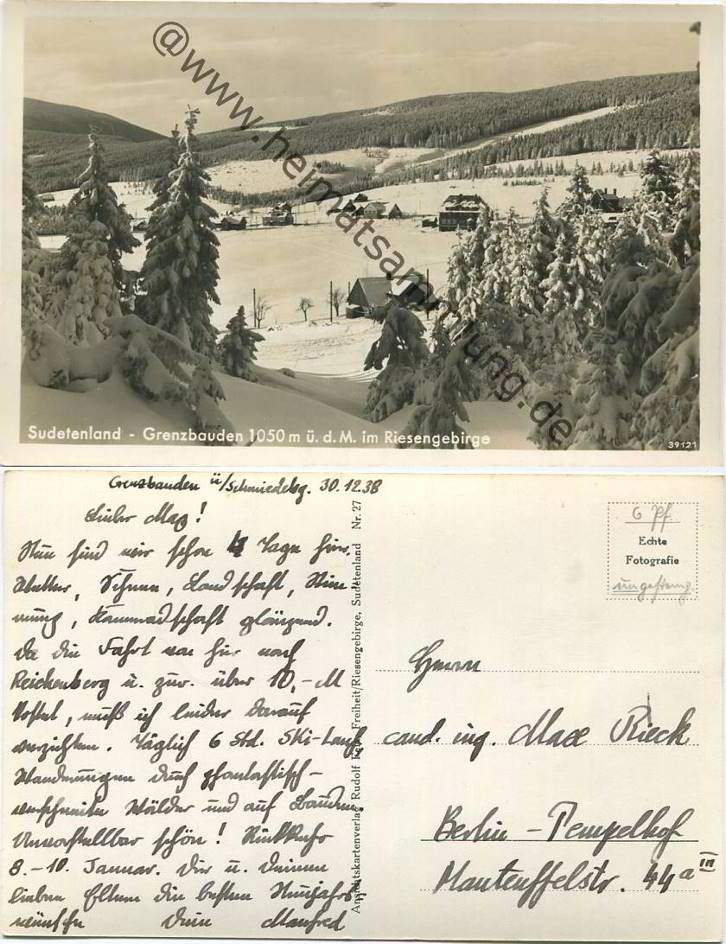 @www.heimatsammlung.de
Sudetenland - Grenzbauden 1050 m ü. d. M. im Riesengebirge
39121
Grenzbauden ü/Schmiedebg. 30.12.38
Lieber Max!
Nun sind wir schon 4 Tage hier.
Wetter, Schnee, Landschaft, Stim-
mung, Kameradschaft glänzend.
Da die Fahrt von hier nach
Reichenberg u. zur. über 10,-M
kostet, muß ich leider darauf
verzichten. Täglich 6 Std. Ski-Lauf,
Wanderungen durch phantastisch-
verschneite Wälder und auf Bauden.
Unvorstellbar schön! Rückkehr
8.-10. Januar. Dir u. Deinen
lieben Eltern die besten Neujahrs-
wünsche Dein Manfred
Ansichtskartenverlag Rudolf Freiheit/Riesengebirge, Sudetenland Nr. 27
6 Pf.
Echte
Fotografie
Herrn
cand. ing. Max Rieck
Berlin-Tempelhof
Manteuffelstr. 44a III